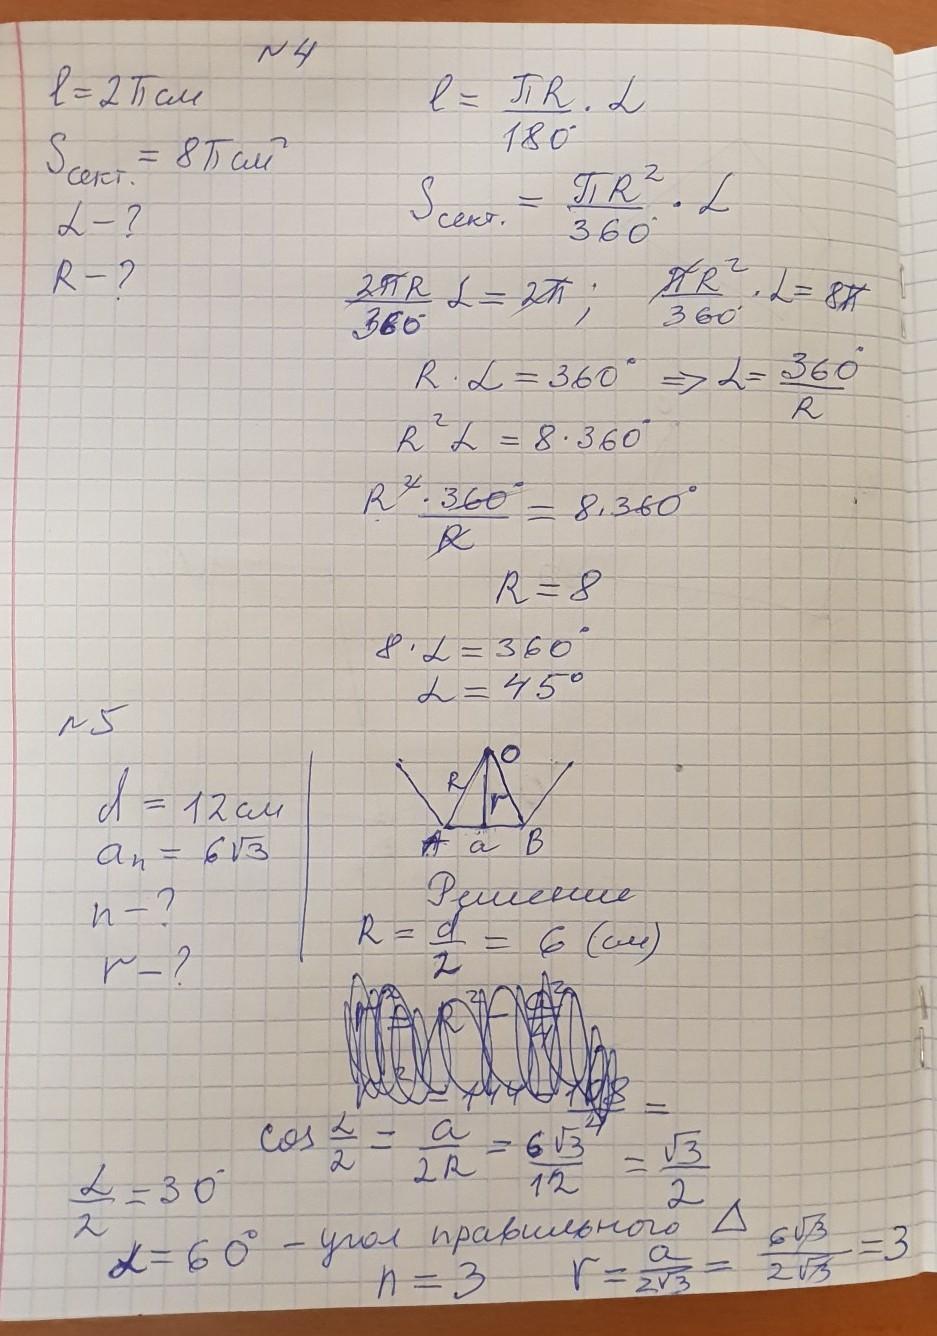 №4
l = 2π см
l = πR/180° · α
Sсект. = 8π см²
Sсект. = πR²/360° · α
α - ?
R - ?
2πR/360° α = 2π ; πR²/360° · α = 8π
R · α = 360° => α = 360°/R
R²α = 8 · 360°
R² · 360°/R = 8 · 360°
R = 8
8 · α = 360°
α = 45°
№5
d = 12 см
aₙ = 6√3
n - ?
r - ?
O
R r
A a B
Решение
R = d/2 = 6 (см)
cos α/2 = a/2R = 6√3/12 = √3/2
α/2 = 30°
α = 60° - угол правильного Δ
n = 3 r = a/2√3 = 6√3/2√3 = 3